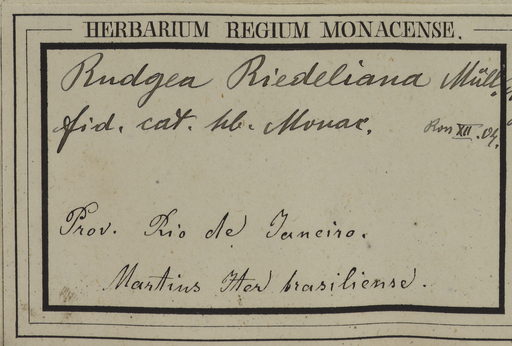 HERBARIUM REGIUM MONACENSE.
Rudgea Riedeliana Müll.
fid. cat. hb. Monac.
XII. 04.
Prov. Rio de Janeiro.
Martius Iter brasiliense.